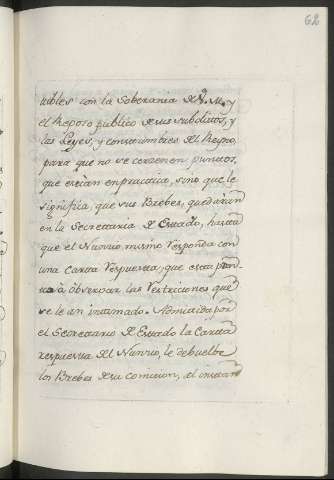 62
tibles con la Soberania de V. M. y
el Reposo publico de sus subditos, y
las Leyes, y constumbres del Reyno,
para que no se
que exerzan en practica, sino que le
significa, que sus Brebes, quedaran
en la Secretaria de Estado, hasta
que el Nuncio, mismo responda con
una Carta respuesta, que esta pron-
to à observar las restriciones que
se le an intimado. Admitida por
el Secretario de Estado la Carta
respuesta del Nunzio, le debuelbe
los Brebes de su comision, al instan